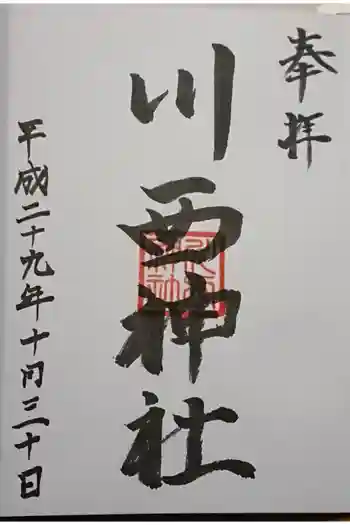 奉拝
川西神社
平成二十九年十月三十日